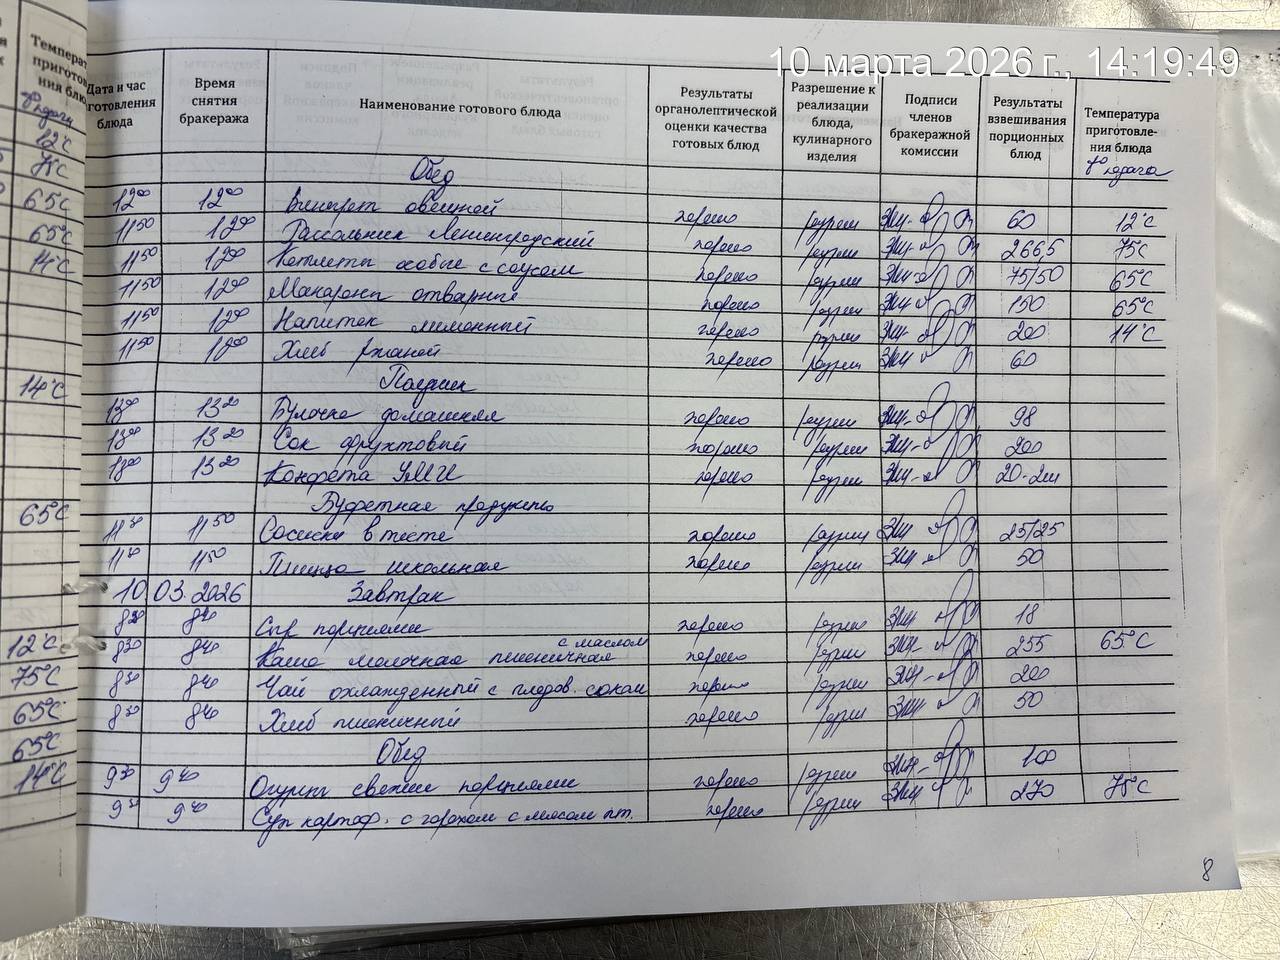 10 марта 2026 г., 14:19:49
Дата и час готовления блюда | Время снятия бракеража | Наименование готового блюда | Результаты органолептической оценки качества готовых блюд | Разрешение к реализации блюда, кулинарного изделия | Подписи членов бракеражной комиссии | Результаты взвешивания порционных блюд | Температура приготовле-ния блюда t° подачи
Обед
12⁰⁰ 12⁰⁰ Винегрет овощной хорошо разреш 60 12°С
11⁵⁰ 12⁰⁰ Рассольник Ленинградский хорошо разреш 266,5 75°С
11⁵⁰ 12⁰⁰ Котлеты особые с соусом хорошо разреш 75/50 65°С
11⁵⁰ 12⁰⁰ Макароны отварные хорошо разреш 150 65°С
11⁵⁰ 12⁰⁰ Напиток лимонный хорошо разреш 200 14°С
11⁵⁰ 12⁰⁰ Хлеб ржаной хорошо разреш 60
Полдник
13⁰⁰ 13²⁰ Булочка домашняя хорошо разреш 98
13⁰⁰ 13²⁰ Сок фруктовый хорошо разреш 200
13⁰⁰ 13²⁰ Конфета хорошо разреш 20-2шт
Буфетная продукция
11³⁰ 11⁵⁰ Сосиски в тесте хорошо разреш 25/25
11³⁰ 11⁵⁰ Пицца школьная хорошо разреш 50
10.03.2026 Завтрак
8³⁰ 8⁴⁰ Сыр порциями хорошо разреш 18
8³⁰ 8⁴⁰ Каша молочная пшеничная с маслом хорошо разреш 255 65°С
8³⁰ 8⁴⁰ Чай охлажденный с плодов. соком хорошо разреш 200
8³⁰ 8⁴⁰ Хлеб пшеничный хорошо разреш 50
Обед
9³⁰ 9⁴⁰ Огурцы свежие порциями хорошо разреш 100
9³⁰ 9⁴⁰ Суп картоф. с горохом с мясом пт. хорошо разреш 270 75°С
8